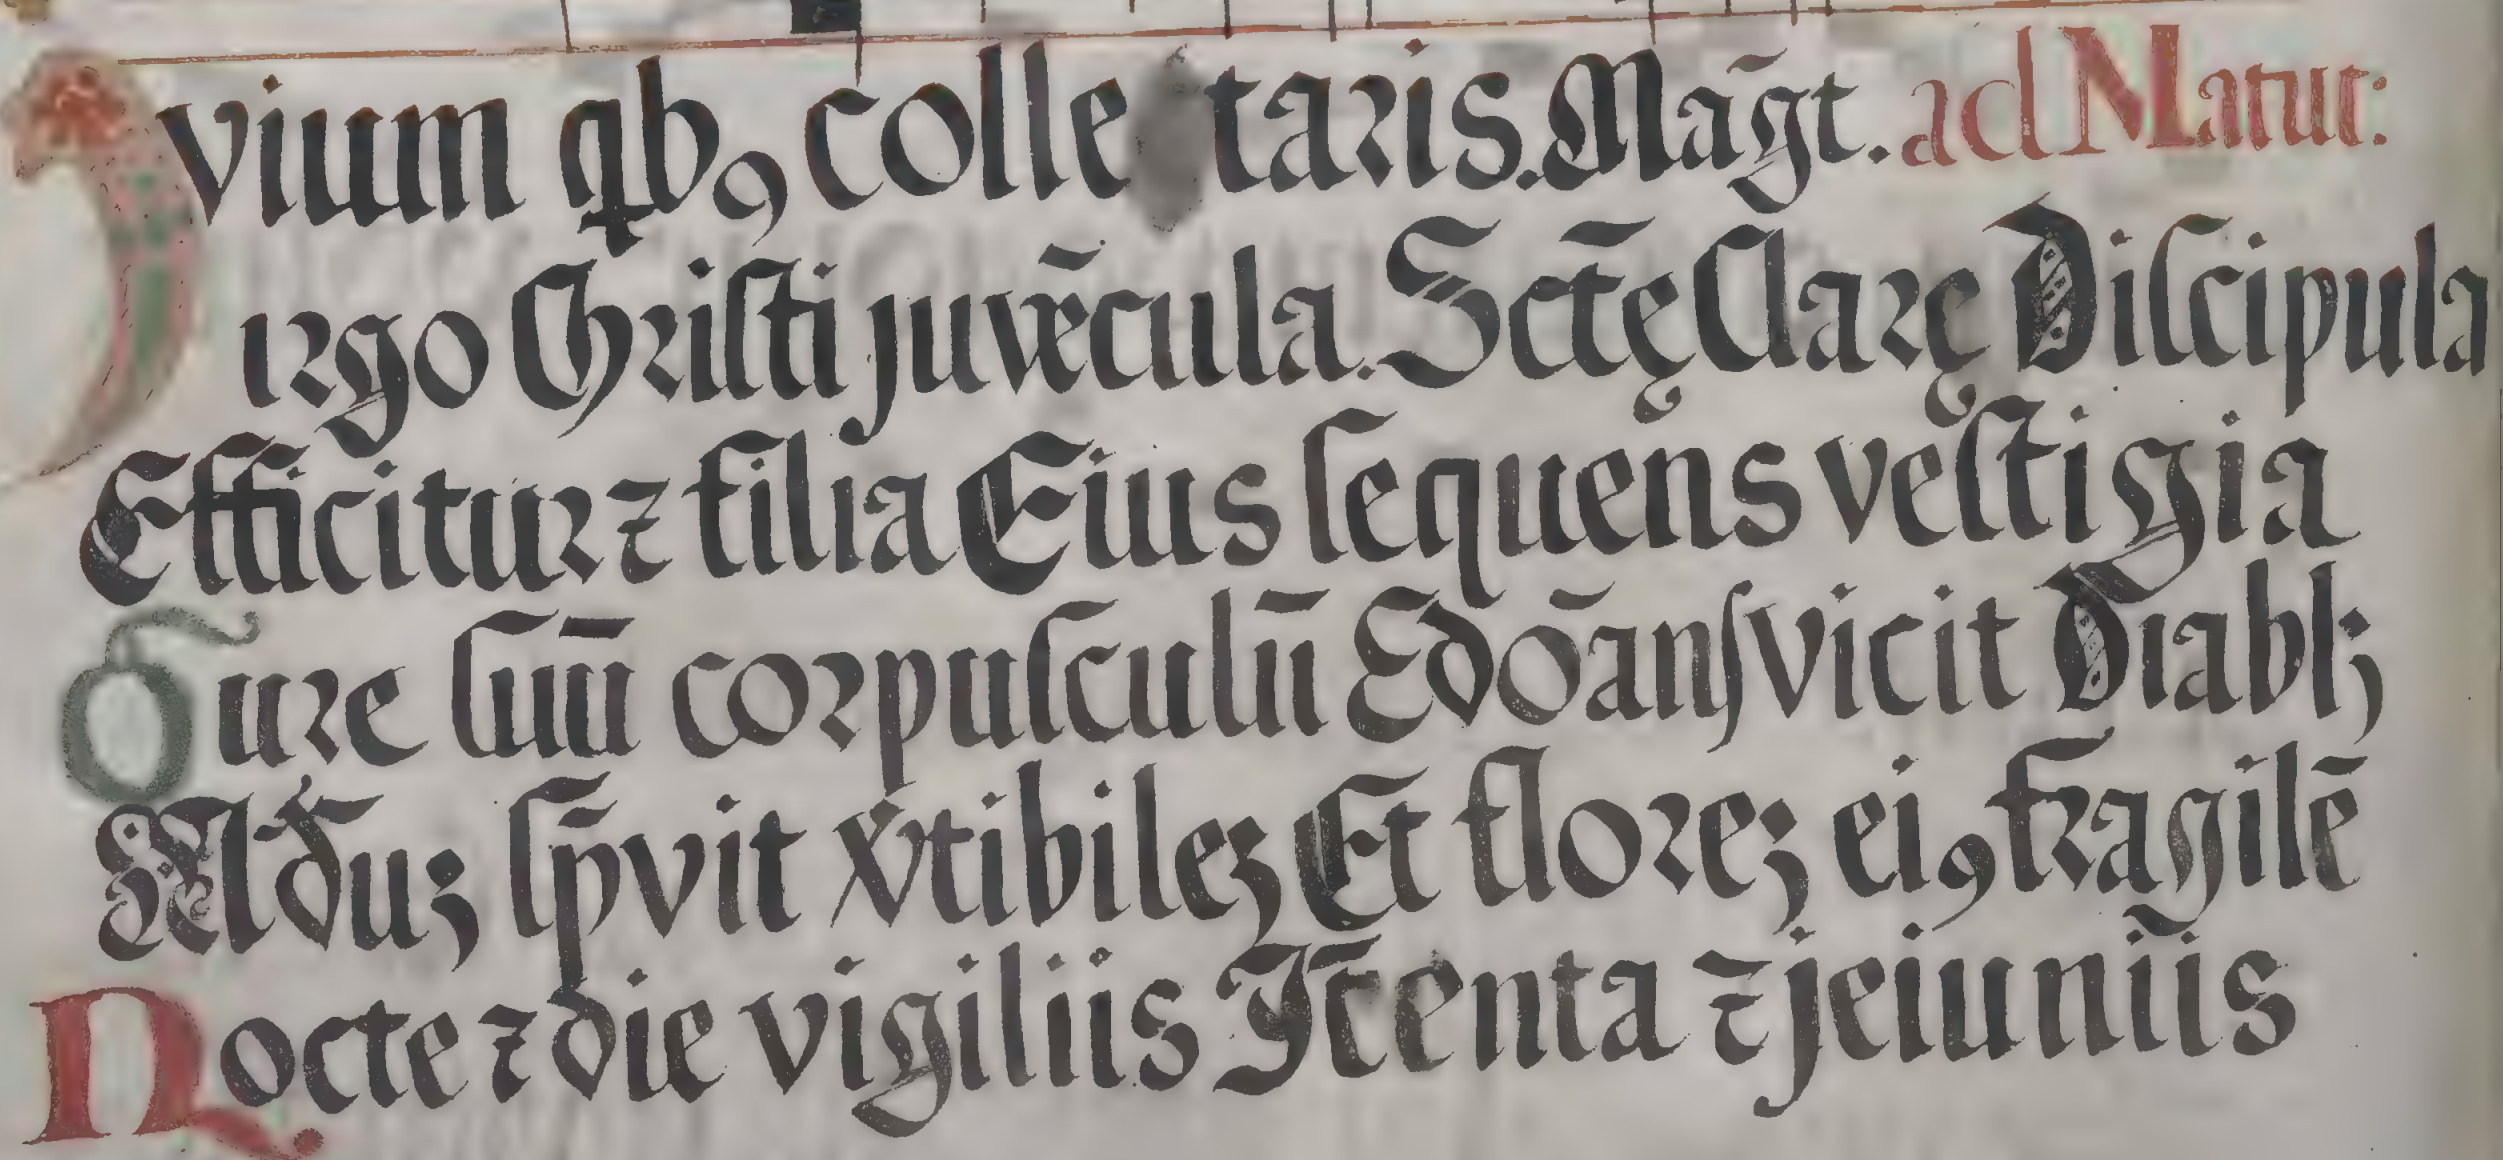 vium qb9 colle taris. Māgt. ad Matut:
Virgo Chriſti juvēcula. Sctę Clarę Diſcipula
Efficitur ⁊ filia Eius ſequens veſtigia
Dure ſuū corpuſculū Edōanſ vicit Diabl3
Mūdu3 ſp̄vit x̄tibile3 Et flore3 ei9 fragilē
Nocte ⁊ die vigiliis Ītēnta ⁊̄ jeiuniis